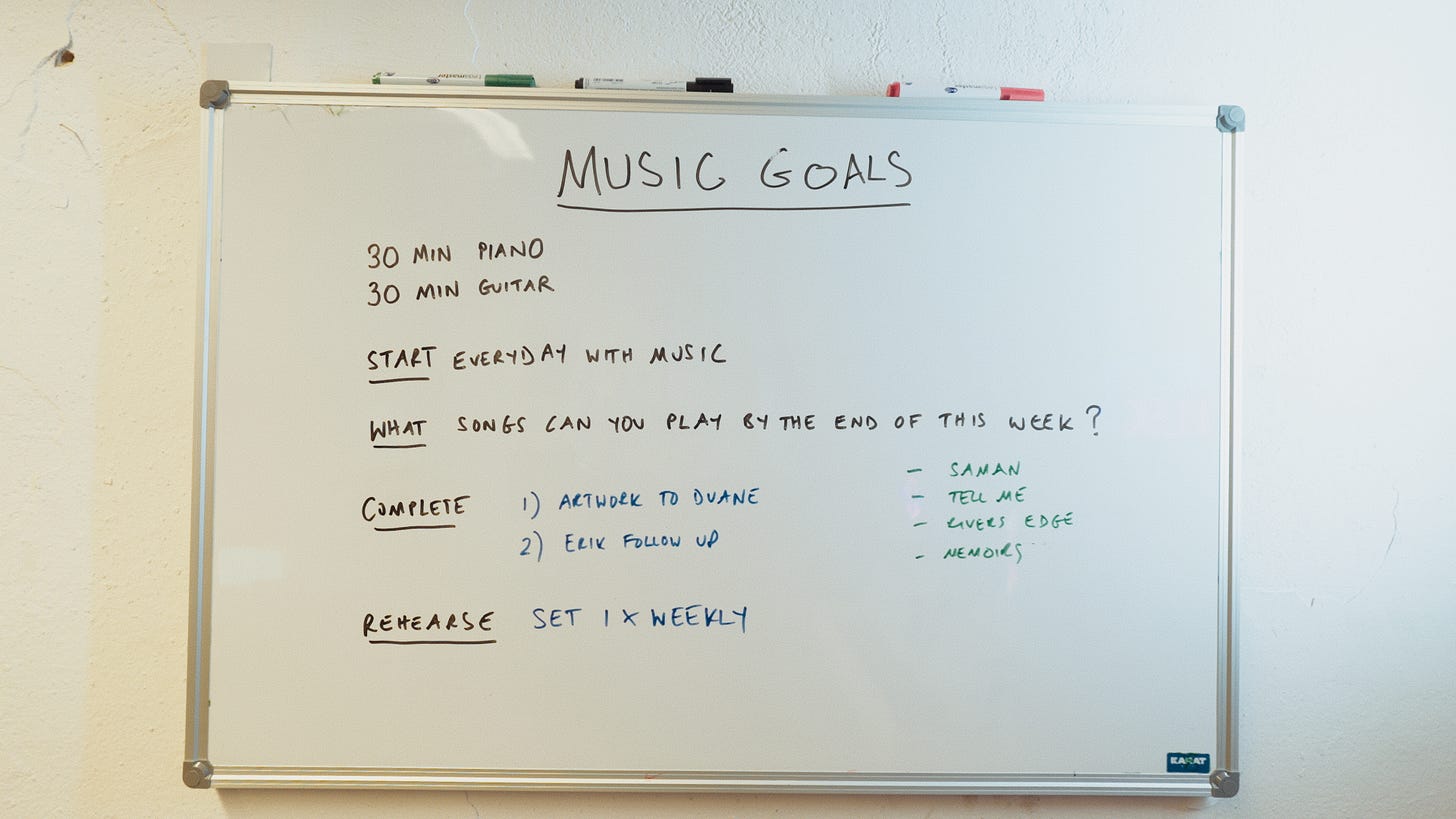 MUSIC GOALS
30 MIN PIANO
30 MIN GUITAR
START EVERYDAY WITH MUSIC
WHAT SONGS CAN YOU PLAY BY THE END OF THIS WEEK?
- SAMAN
- TELL ME
- RIVERS EDGE
- MEMOIRS
COMPLETE 1) ARTWORK TO DUANE
2) ERIK FOLLOW UP
REHEARSE SET 1 X WEEKLY
KARAT